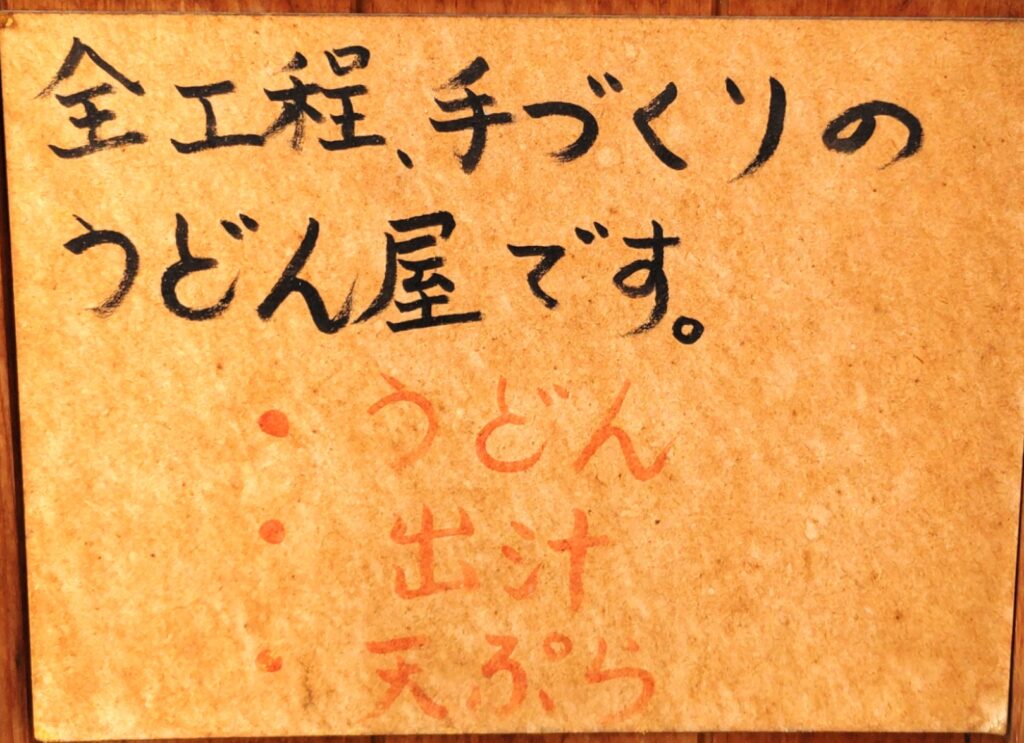 全工程、手づくりの
うどん屋です。
・うどん
・出汁
・天ぷら